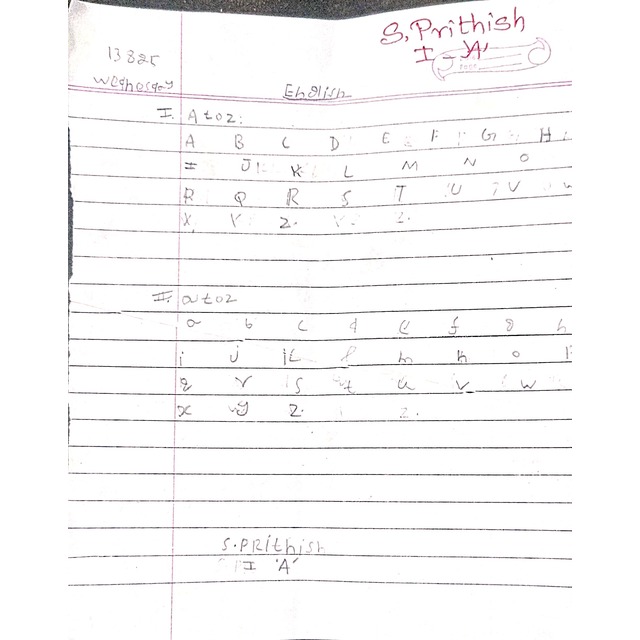 S. Prithish
I - 'A'
13825
Wednesday
English
I. A to z:
A B C D E F G H
I J K L M N O
P Q R S T U V w
X Y Z.
II. a to z
a b c d e f g h
i j k l m n o p
q r s t u v w
x y z.
S. PRithish
I 'A'